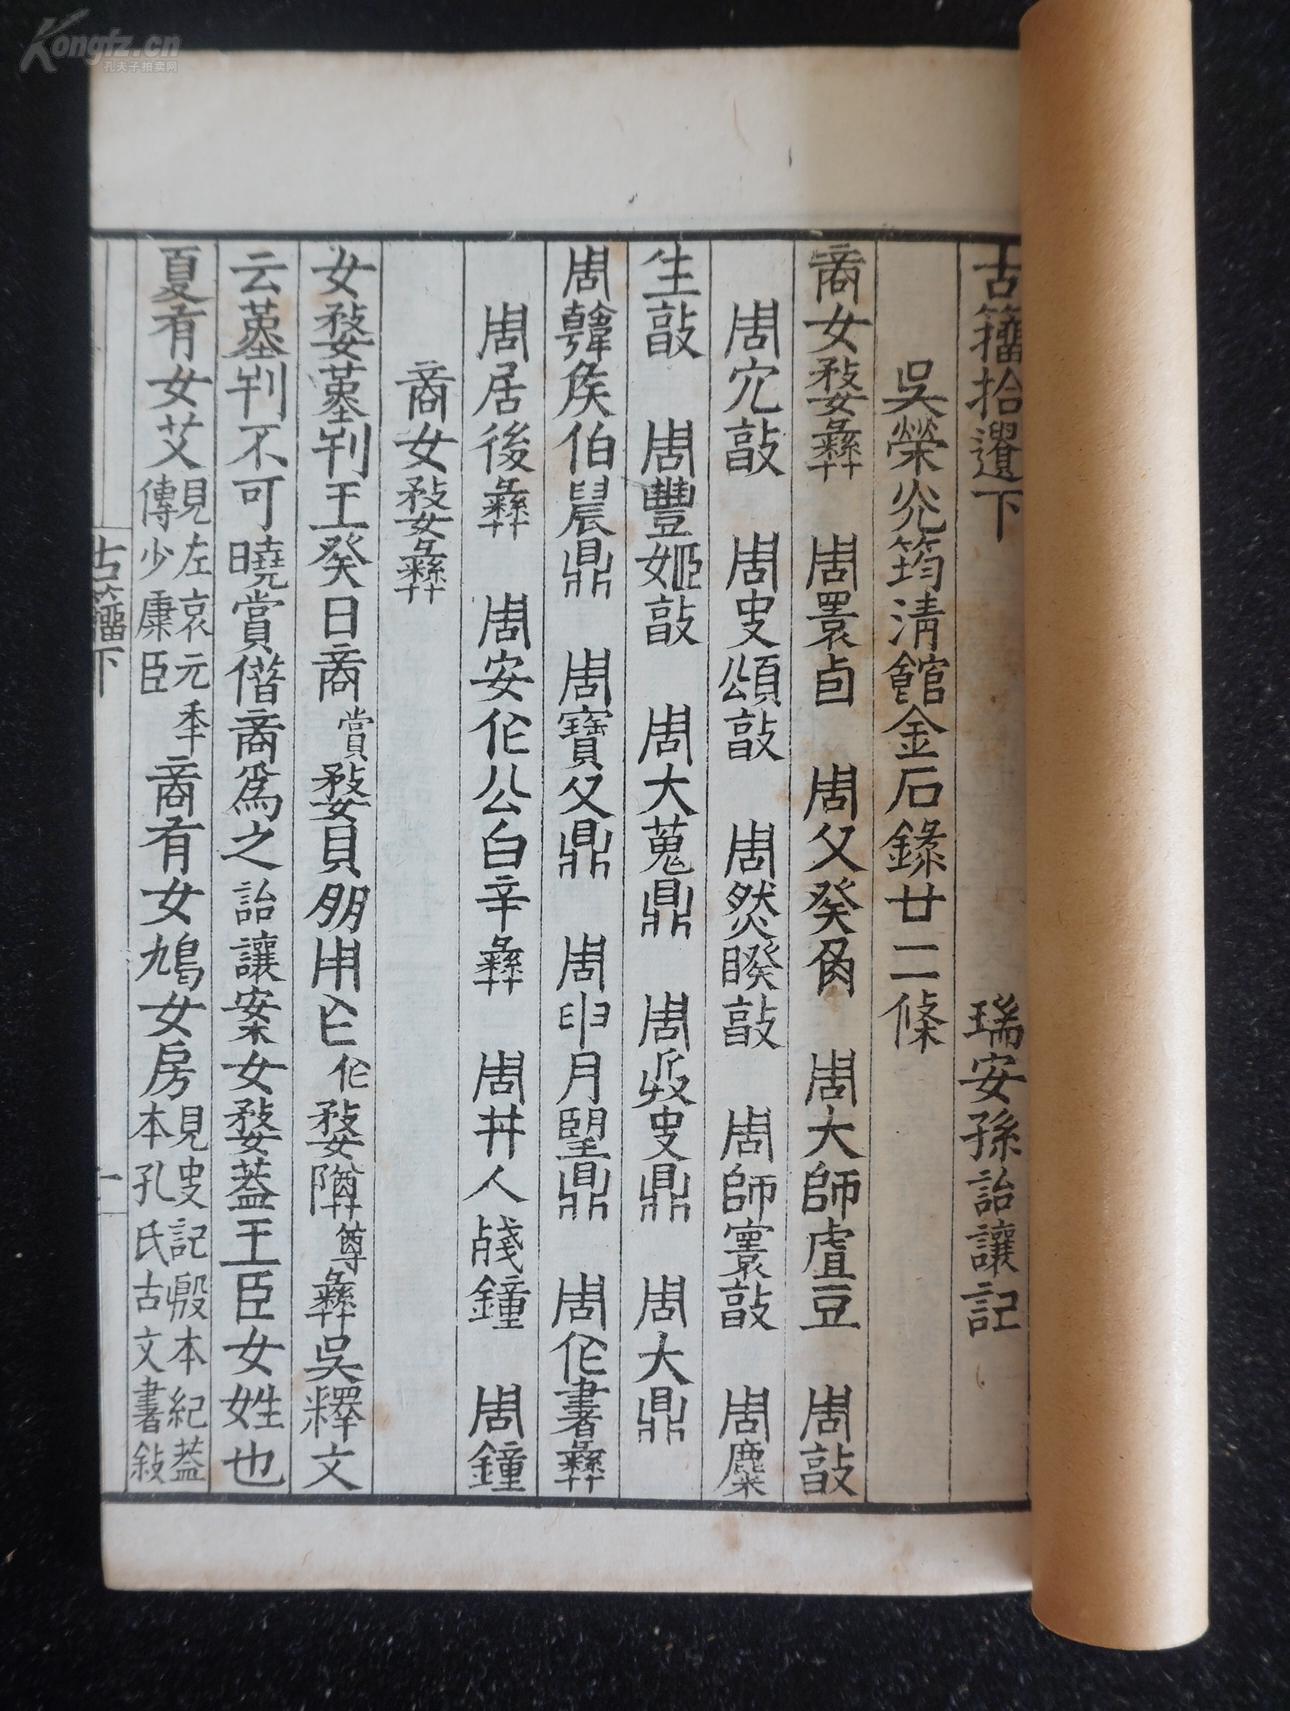 古籀拾遺下 瑞安孫詒讓記
吳榮光筠淸館金石錄廿二條
商女婺彝 周睘卣 周父癸角 周大師虘豆 周敦
周宂敦 周叏頌敦 周然睽敦 周師寰敦 周麋
生敦 周豐姬敦 周大蒐鼎 周叏鼎 周大鼎
周韓矦伯晨鼎 周寶父鼎 周月朢鼎 周作書彝
周居後彝 周安作公白辛彝 周丼人殘鐘 周鐘
商女婺彝
女婺堇王癸日商賞婺貝朋用作婺尊彝吳釋文
云堇不可曉賞偕商爲之詒讓案女婺蓋王臣女姓也
夏有女艾見左哀元年傳少康臣商有女鳩女房見史記殷本紀蓋本孔氏古文書敍
古籀下
一
Kongfz.cn
孔夫子拍卖网